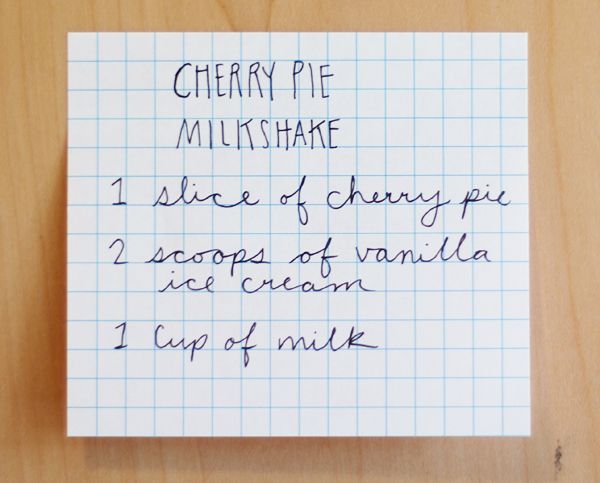 CHERRY PIE
MILKSHAKE
1 slice of cherry pie
2 scoops of vanilla
ice cream
1 cup of milk